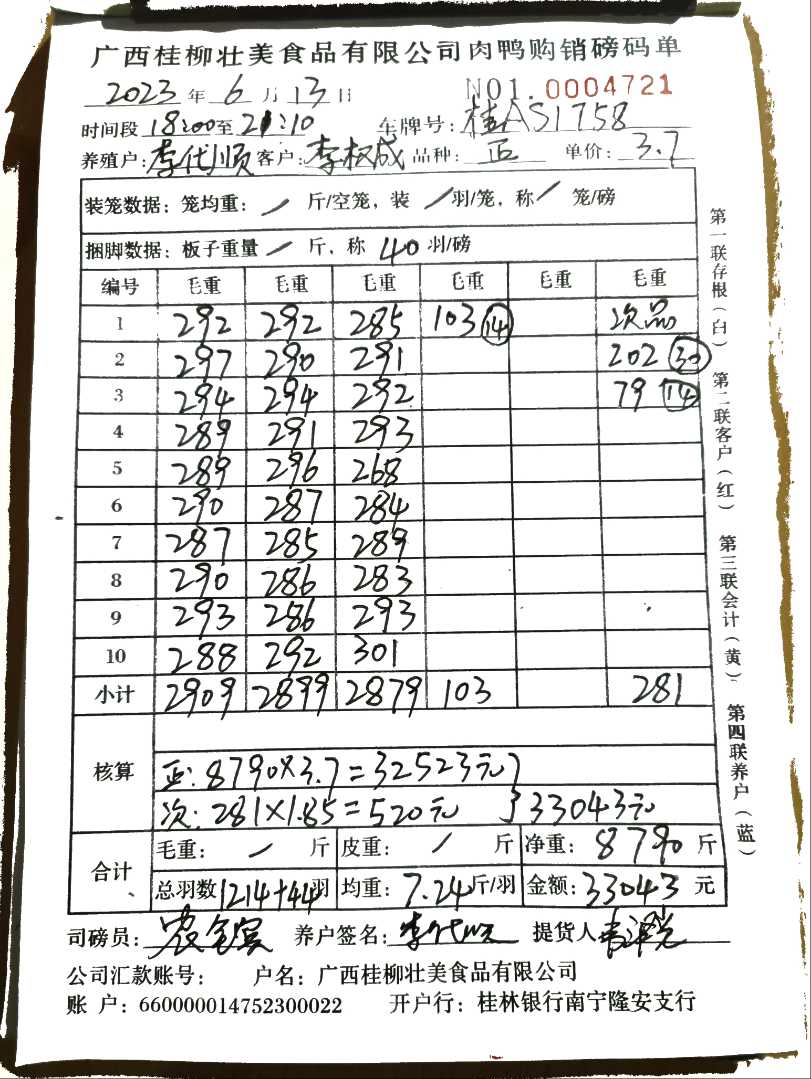 广西桂柳壮美食品有限公司肉鸭购销磅码单
2023年6月13日 NO1.0004721
时间段18:00至21:10 车牌号:桂AS1758
养殖户:李代顺 客户:李权成 品种:正 单价:3.7
装笼数据:笼均重:/斤/空笼,装/羽/笼,称/笼/磅
捆脚数据:板子重量/斤,称40羽/磅
编号 毛重 毛重 毛重 毛重 毛重 毛重
1 292 292 285 103 14 次品
2 297 290 291 202 30
3 294 294 292 79 14
4 289 291 293
5 289 296 268
6 290 287 284
7 287 285 289
8 290 286 283
9 293 286 293
10 288 292 301
小计 2909 2899 2879 103 281
核算
正:8790×3.7=32523元
次:281×1.85=520元 }33043元
合计
毛重:/斤 皮重:/斤 净重:8790斤
总羽数1214+44羽 均重:7.24斤/羽 金额:33043元
司磅员: 养户签名:李代顺 提货人
公司汇款账号: 户名:广西桂柳壮美食品有限公司
账户:660000014752300022 开户行:桂林银行南宁隆安支行
第一联存根(白) 第二联客户(红) 第三联会计(黄) 第四联养户(蓝)